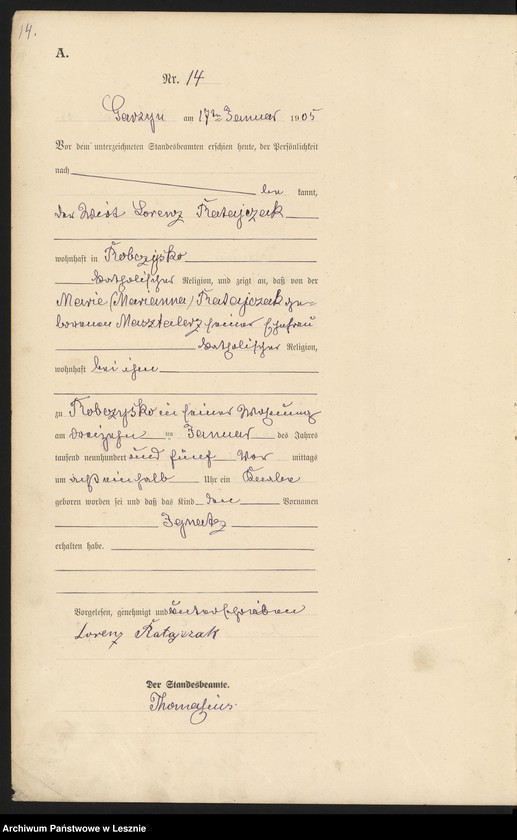 14.
A.
Nr. 14
Garzyn am 17ten Januar 1905
Vor dem unterzeichneten Standesbeamten erschien heute, der Persönlichkeit
nach
be kannt,
der Wirt Lorenz Ratajczak
wohnhaft in Robczysko
katholischer Religion, und zeigt an, daß von der
Marie (Marianna) Ratajczak ge-
borenen Masztalerz seiner Ehefrau
katholischer Religion,
wohnhaft bei ihm
zu Robczysko in seiner Wohnung
am dreizehn ten Januar des Jahres
tausend neunhundert und fünf Vor mittags
um Uhr ein Knabe
geboren worden sei und daß das Kind den Vornamen
Ignatz
erhalten habe.
Vorgelesen, genehmigt und unterschrieben
Lorenz Ratajczak
Der Standesbeamte.
Thomasius
Archiwum Państwowe w Lesznie